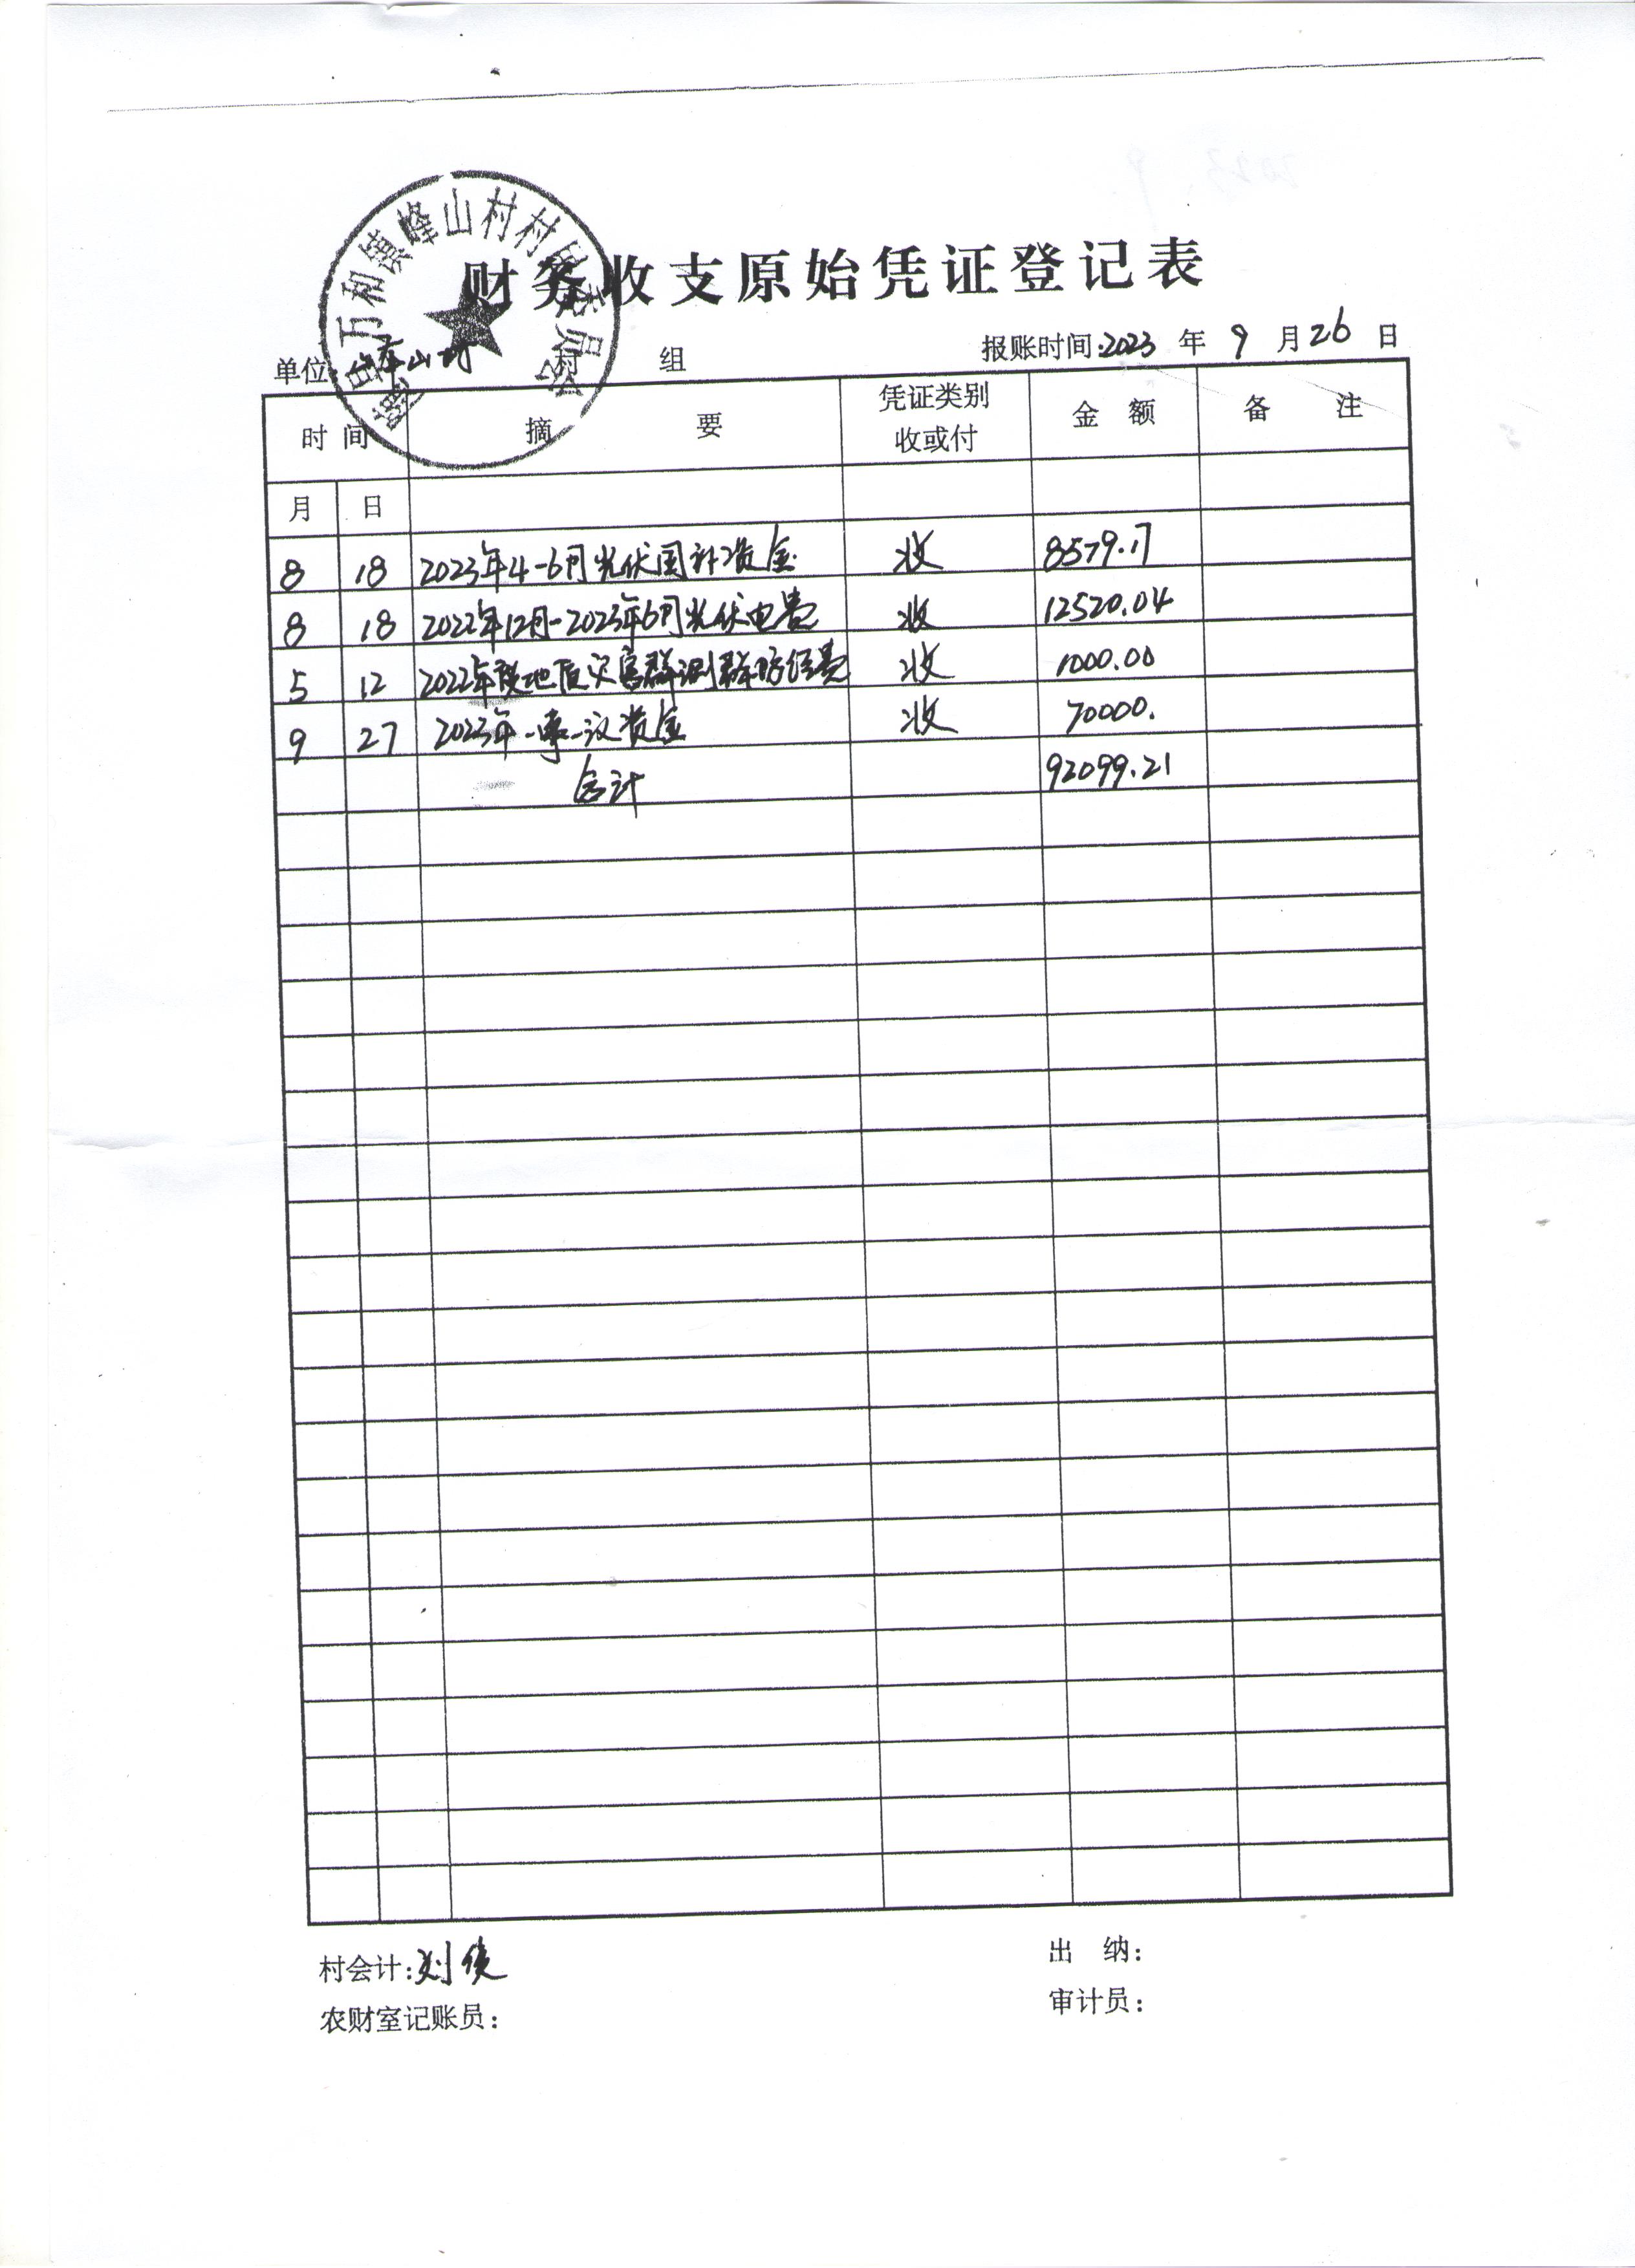 随县万和镇峰山村村民委员会
财务收支原始凭证登记表
单位: 峰山村 村 组 报账时间:2023 年 9 月 26 日
时 间 摘 要 凭证类别 收或付 金 额 备 注
月 日
8 18 2023年4-6月光伏国补资金 收 8579.17
8 18 2022年12月-2023年6月光伏电费 收 12520.04
5 12 2022年度地质灾害群测群防经费 收 1000.00
9 27 2023年一事一议资金 收 70000.
合计 92099.21
村会计: 刘俊 出 纳:
农财室记账员: 审计员: